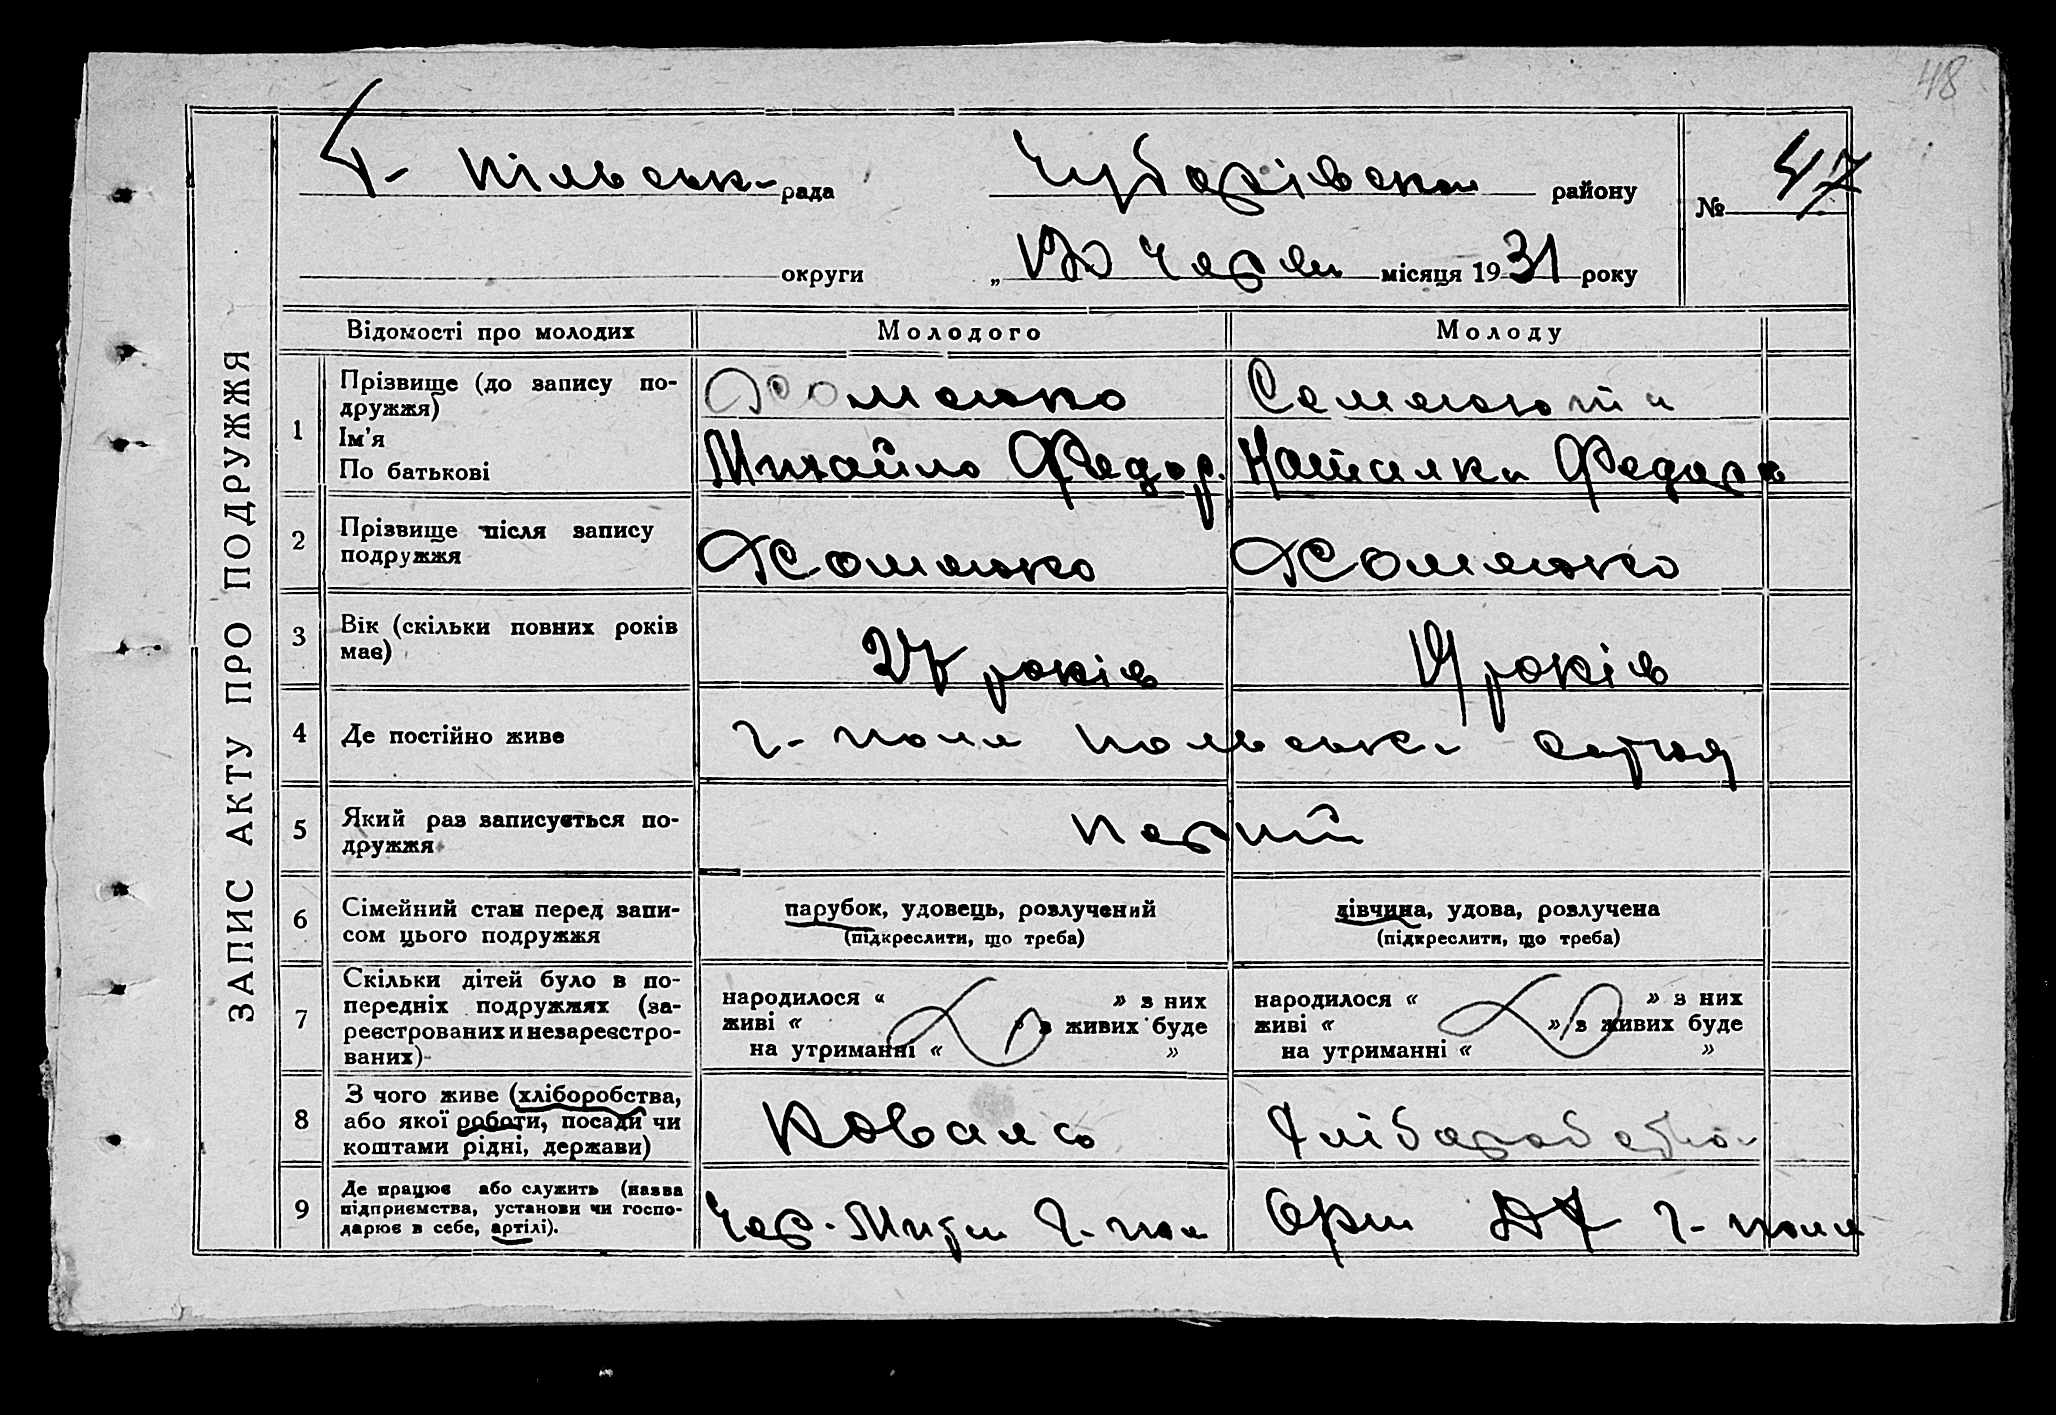 48
Г- пільськ- рада Чубарівськ району № 47
округи „ 20 Черв місяця 1931 року
ЗАПИС АКТУ ПРО ПОДРУЖЖЯ
Відомості про молодих Молодого Молоду
1 Прізвище (до запису по-
дружжя) Хоменко
Ім'я
По батькові Михайло Федор. Наталка Федора
2 Прізвище після запису
подружжя Хоменко Хоменко
3 Вік (скільки повних років
має) 27 років 19 років
4 Де постійно живе г- поле польськ
5 Який раз записується по-
дружжя перший
6 Сімейний стан перед запи-
сом цього подружжя
парубок, удовець, розлучений
(підкреслити, що треба)
дівчина, удова, розлучена
(підкреслити, що треба)
7 Скільки дітей було в по-
передніх подружжях (за-
реєстрованих и незареєстро-
ваних)
народилося “ ” з них
живі “ ” з живих буде
на утриманні “ ”
народилося “ ” з них
живі “ ” з живих буде
на утриманні “ ”
8 З чого живе (хліборобства,
або якої роботи, посади чи
коштами рідні, держави) Коваль
9 Де працює або служить (назва
підприємства, установи чи госпо-
дарює в себе, артілі). Г- пол г- поле